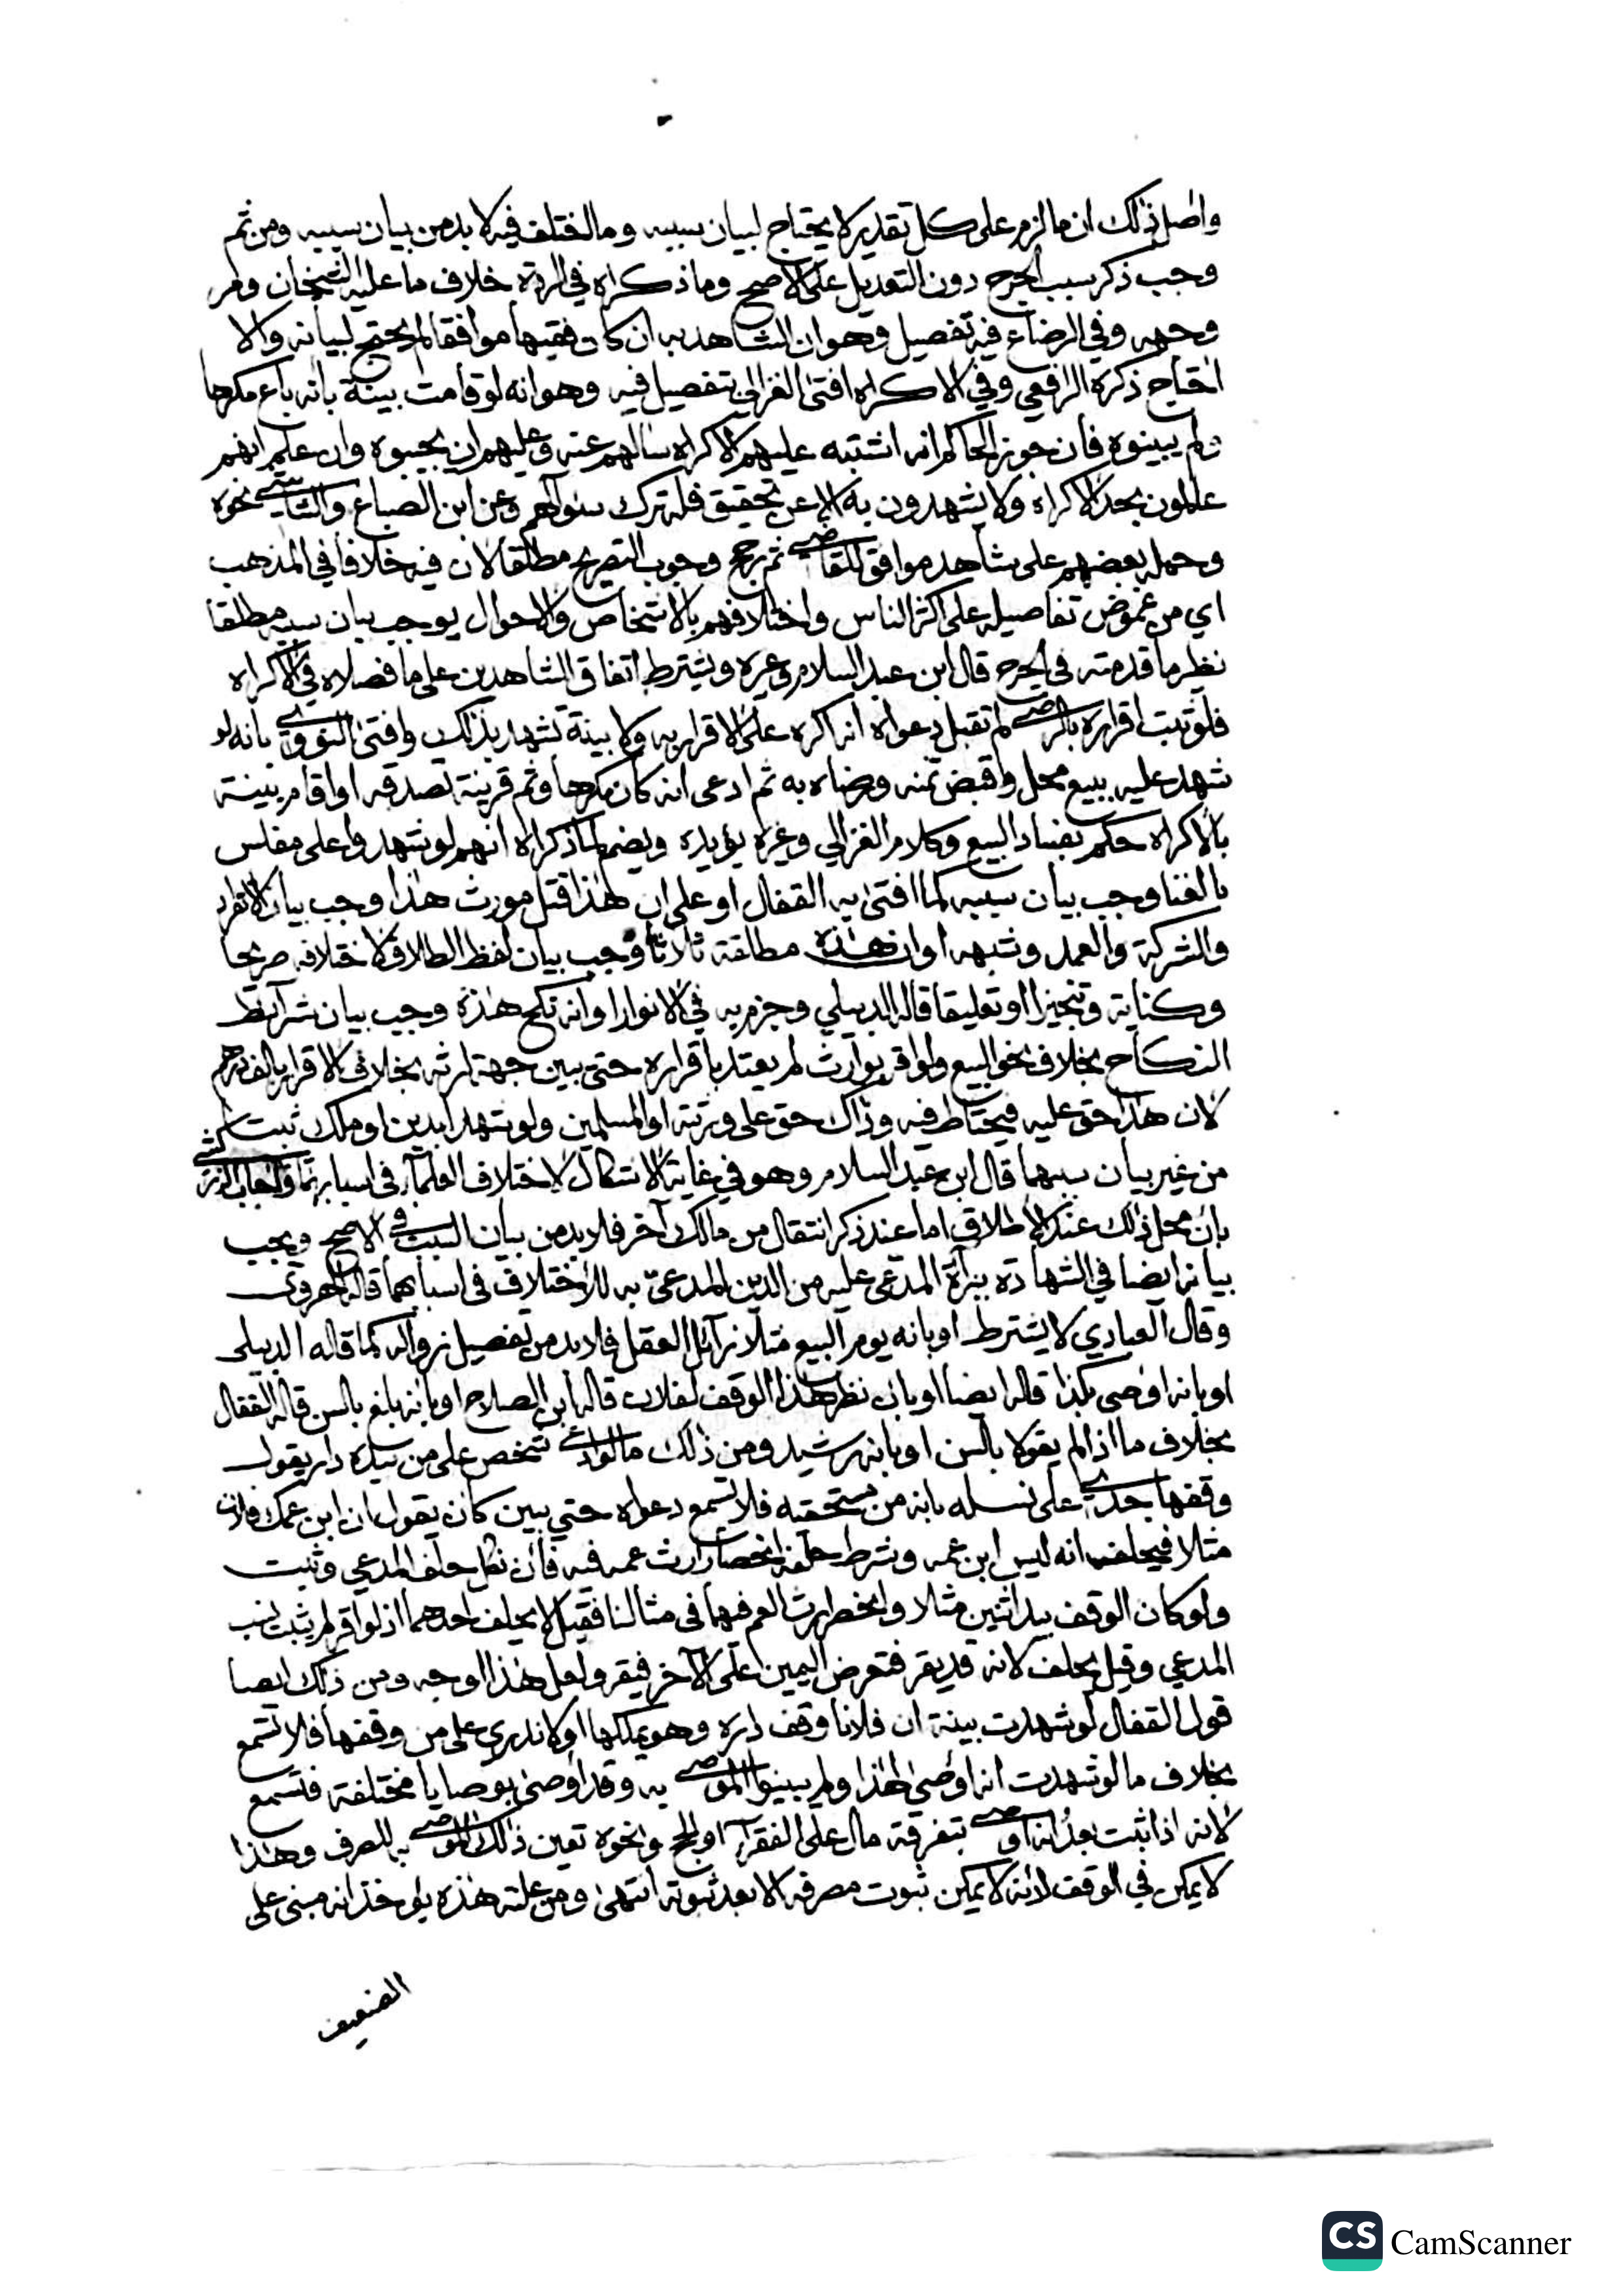 واصل ذلك ان ما لزم على كل تقدير لا يحتاج لبيان سببه وما اختلف فيه لا بد من بيان سببه ومن ثم
وجب ذكر سبب الجرح دون التعديل على الاصح وما ذكراه في الردة خلاف ما عليه الشيخان ومر
وجهه وفي الرضاع فيه تفصيل وهو ان الشاهد به ان كان فقيها موافقا لم يحتج لبيانه والا
احتاج ذكره الرافعي وفي الاكراه افتى الغزالي بتفصيل فيه وهو انه لو قامت بينة بانه باع مكرها
ولم يبينوه فان جوز الحاكم انه اشتبه عليهم الاكراه سالهم عنه وعليهم ان يجيبوه وان علم انهم
عالمون بحد الاكراه ولا يشهدون به الا عن تحقيق فله ترك سؤالهم وعن ابن الصباغ والشاشي نحوه
وحمله بعضهم على شاهد موافق للقاضي ثم رجح وجوب التصريح مطلقا لان فيه خلافا في المذهب
اي من غموض تفاصيله على اكثر الناس واختلافهم بالاشخاص والاحوال يوجب بيان سببه مطلقا
نظير ما قدمته في الجرح قال ابن عبد السلام وغيره ويشترط اتفاق الشاهدين على ما فصلاه في الاكراه
فلو ثبت اقراره بالرضى لم تقبل دعواه انه اكره على الاقرار به ولا بينة تشهد بذلك وافتى النووي بانه لو
شهد عليه ببيع محل واقبض ثمنه ورضاه به ثم ادعى انه كان مكرها وثم قرينة تصدقه او اقام بينة
بالاكراه حكم بفساد البيع وكلام الغزالي وغيره يؤيده ويضم لما ذكراه انهم لو شهدوا على مفلس
بالغنا وجب بيان سببه كما افتى به القفال او على ان هذا قتل مورث هذا وجب بيان الانفراد
والشركة والعمد وشبهه او ان هذه مطلقة ثلاثا وجب بيان لفظ الطلاق لاختلافه صريحا
وكناية وتنجيزا او تعليقا قاله الدبيلي وجزم به في الانوار او انه نكح هذه وجب بيان شرائط
النكاح بخلاف نحو البيع ولو اقر بوارث لم يعتد باقراره حتى يبين جهة ارثه بخلاف الاقرار بالف درهم
لان هذا حق عليه فيحتاط فيه وذاك حق على ورثته او المسلمين ولو شهدا بدين او ملك ثبت
من غير بيان سببهما قال ابن عبد السلام وهو في غاية الاشكال لاختلاف العلمآء في اسبابهما واجاب الزركشي
بان محل ذلك عند الاطلاق اما عند ذكر انتقال من مالك آخر فلا بد من بيان السبب في الاصح ويجب
بيانه ايضا في الشهادة ببرآة المدعى عليه من الدين المدعى به للاختلاف في اسبابهما قاله الهروي
وقال العبادي لا يشترط او بانه يوم البيع مثلا زآئل العقل فلا بد من تفصيل زواله كما قاله الدبيلي
او بانه اوصى بكذا قاله ايضا او بان نظر هذا الوقف لفلان قاله ابن الصلاح او بانه بلغ بالسن قاله القفال
بخلاف ما اذا لم يقولا بالسن او بانه رشيد ومن ذلك ما لو ادعى شخص على من بيده دار يقول
وقفها جدي على نسله بانه من مستحقيه فلا تسمع دعواه حتى يبين كان يقول ان ابن عمك فلان
مثلا فيحلف انه ليس ابن عمه وشرط حلفه انحصار ارث عمه فيه فان نكل حلف المدعي وثبت
ولو كان الوقف بيد اثنين مثلا وانحصر ارث العم فيهما في مثالنا فقيل لا يحلف احدهما اذ لو اقر لم يثبت نسب
المدعي وقيل يحلف لانه قد يقر فتعرض اليمين على الآخر فيقر ولعل هذا اوجه ومن ذلك ايضا
قول القفال لو شهدت بينة ان فلانا وقف داره وهو يملكها او لا ندري على من وقفها فلا تسمع
بخلاف ما لو شهدت انه اوصى لهذا ولم يبينوا الموصى به وقد اوصى بوصايا مختلفة فتسمع
لانه اذا ثبت بعد انه اوصى بتفرقة مال على الفقرآء او الحج ونحوه تعين ذلك الموصى به للصرف وهذا
لا يمكن في الوقف لانه لا يمكن ثبوت مصرفه الا بعد ثبوته انتهى ومن علته هذه يؤخذ انه مبني على
الضعيف
CS CamScanner